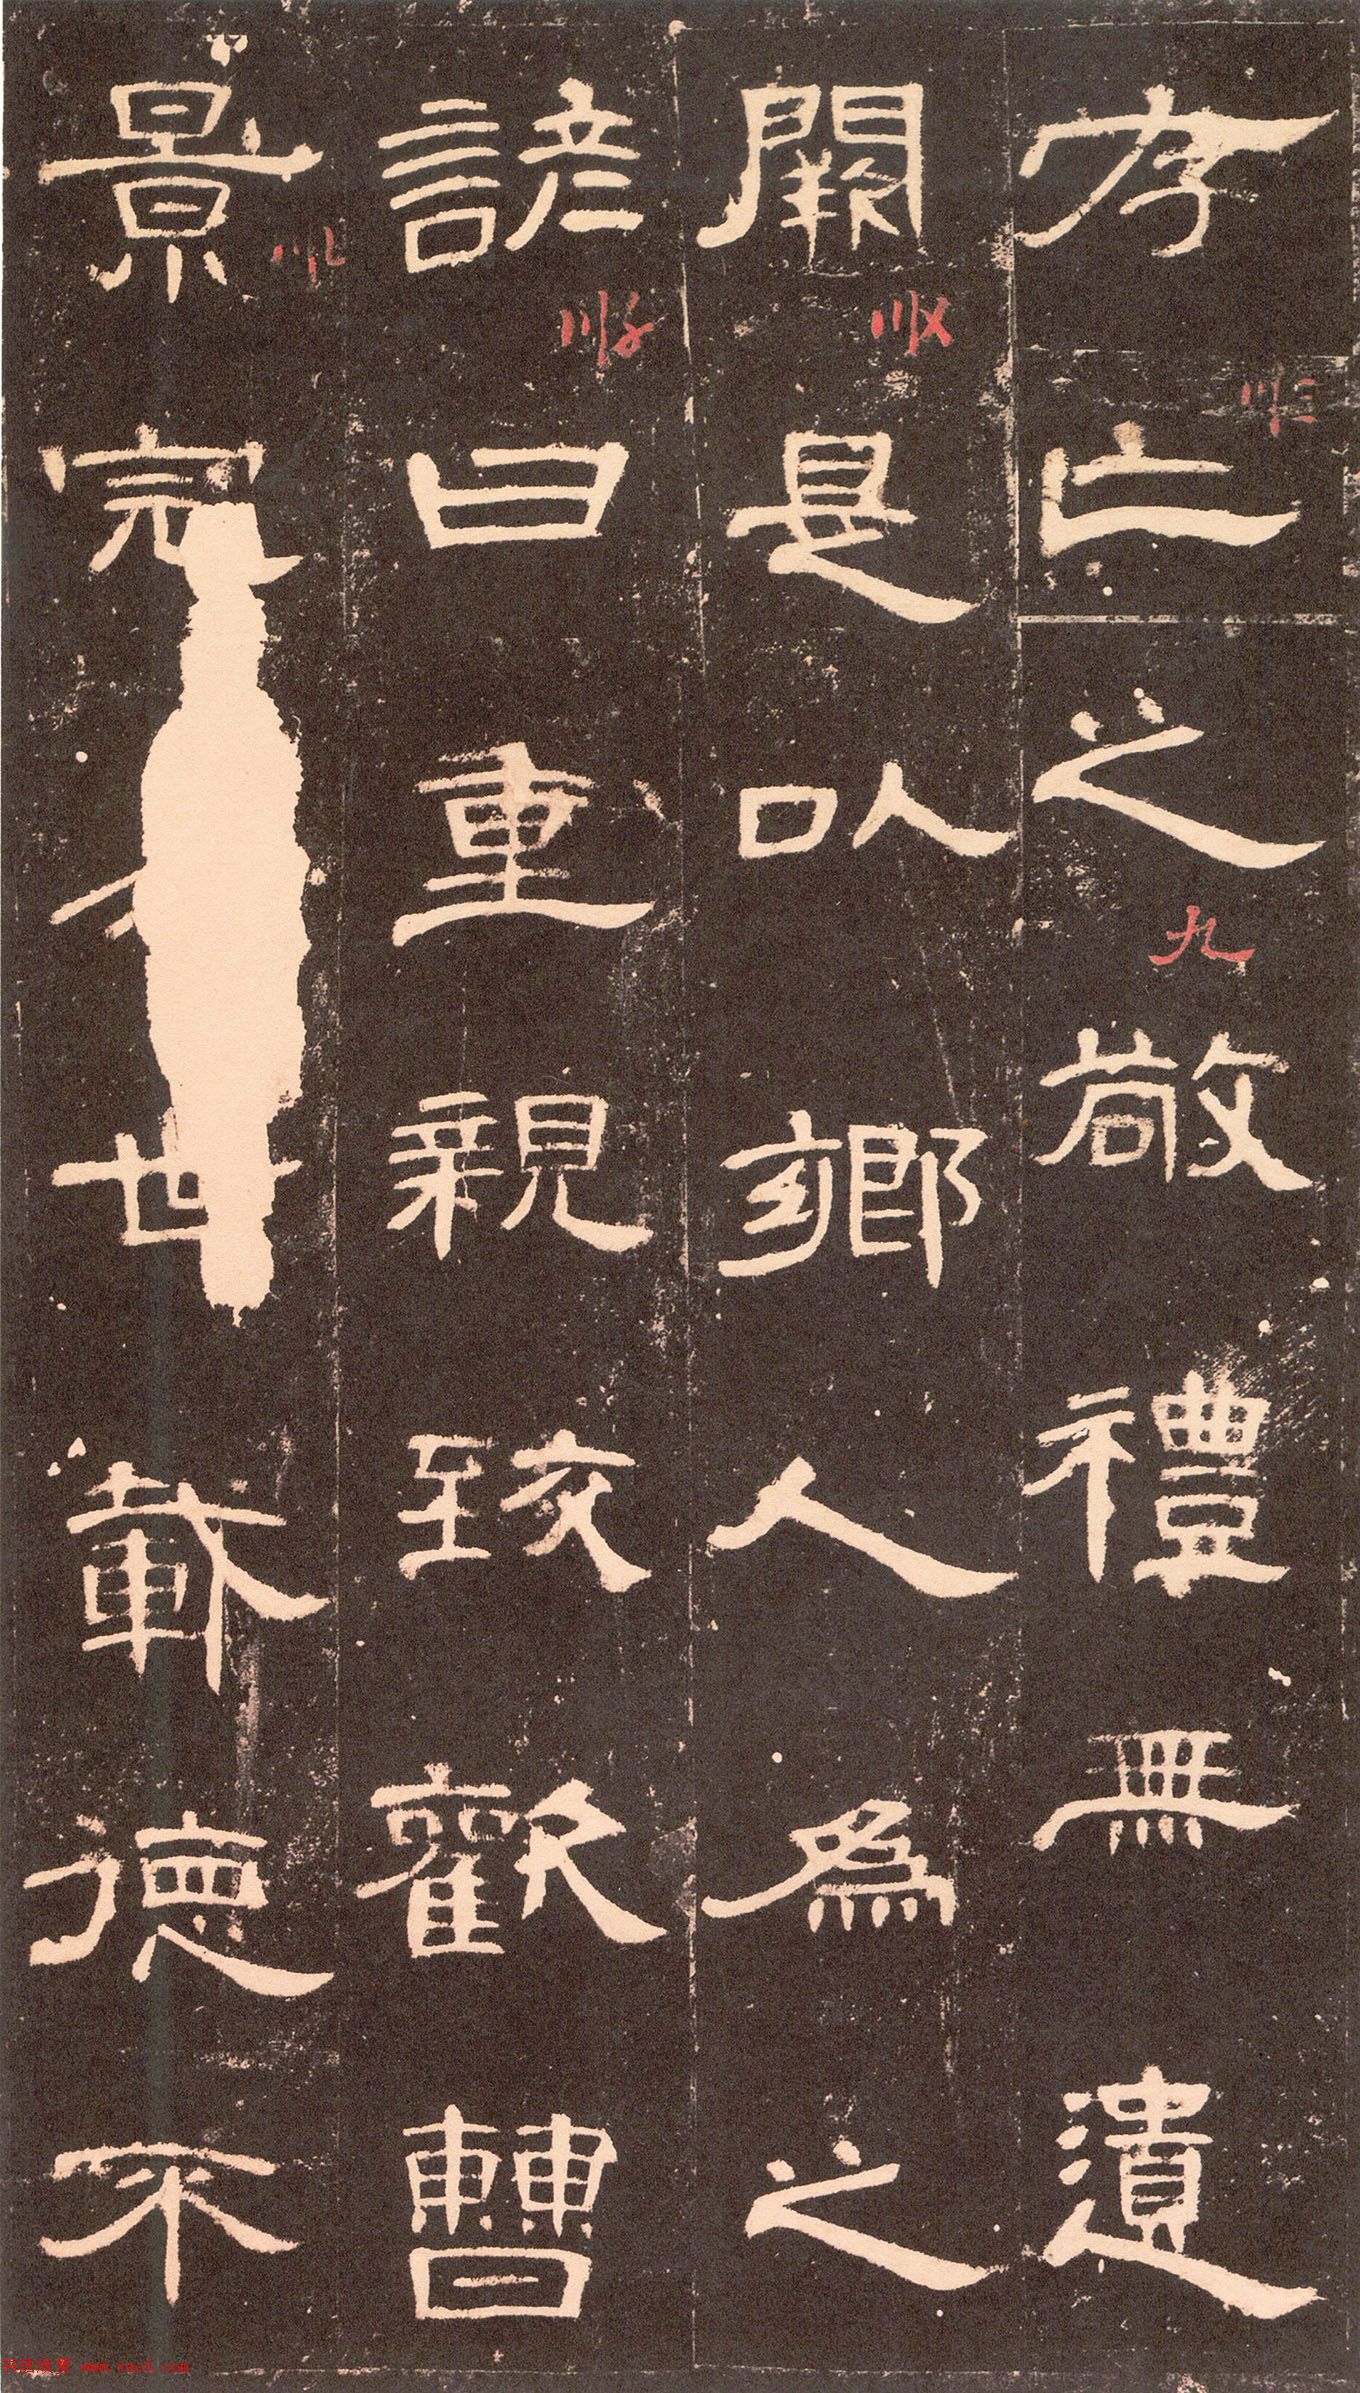 存亡之敬禮無遺
闕是以鄉人為之
諺曰重親致歡曹
景完世載德不